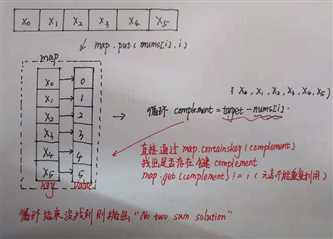 X0 X1 X2 X3 X4 X5
map.put(nums[i], i)
map
X0 0
X1 1
X2 2
X3 3
X4 4
X5 5
key value
{ X0, X1, X2, X3, X4, X5 }
循环 complement = target - nums[i].
直接通过 map.containsKey(complement)
找出是否存在 complement
map.get(complement) != i (元素不能重复利用)
循环结束没找到则抛出 "No two sum solution"